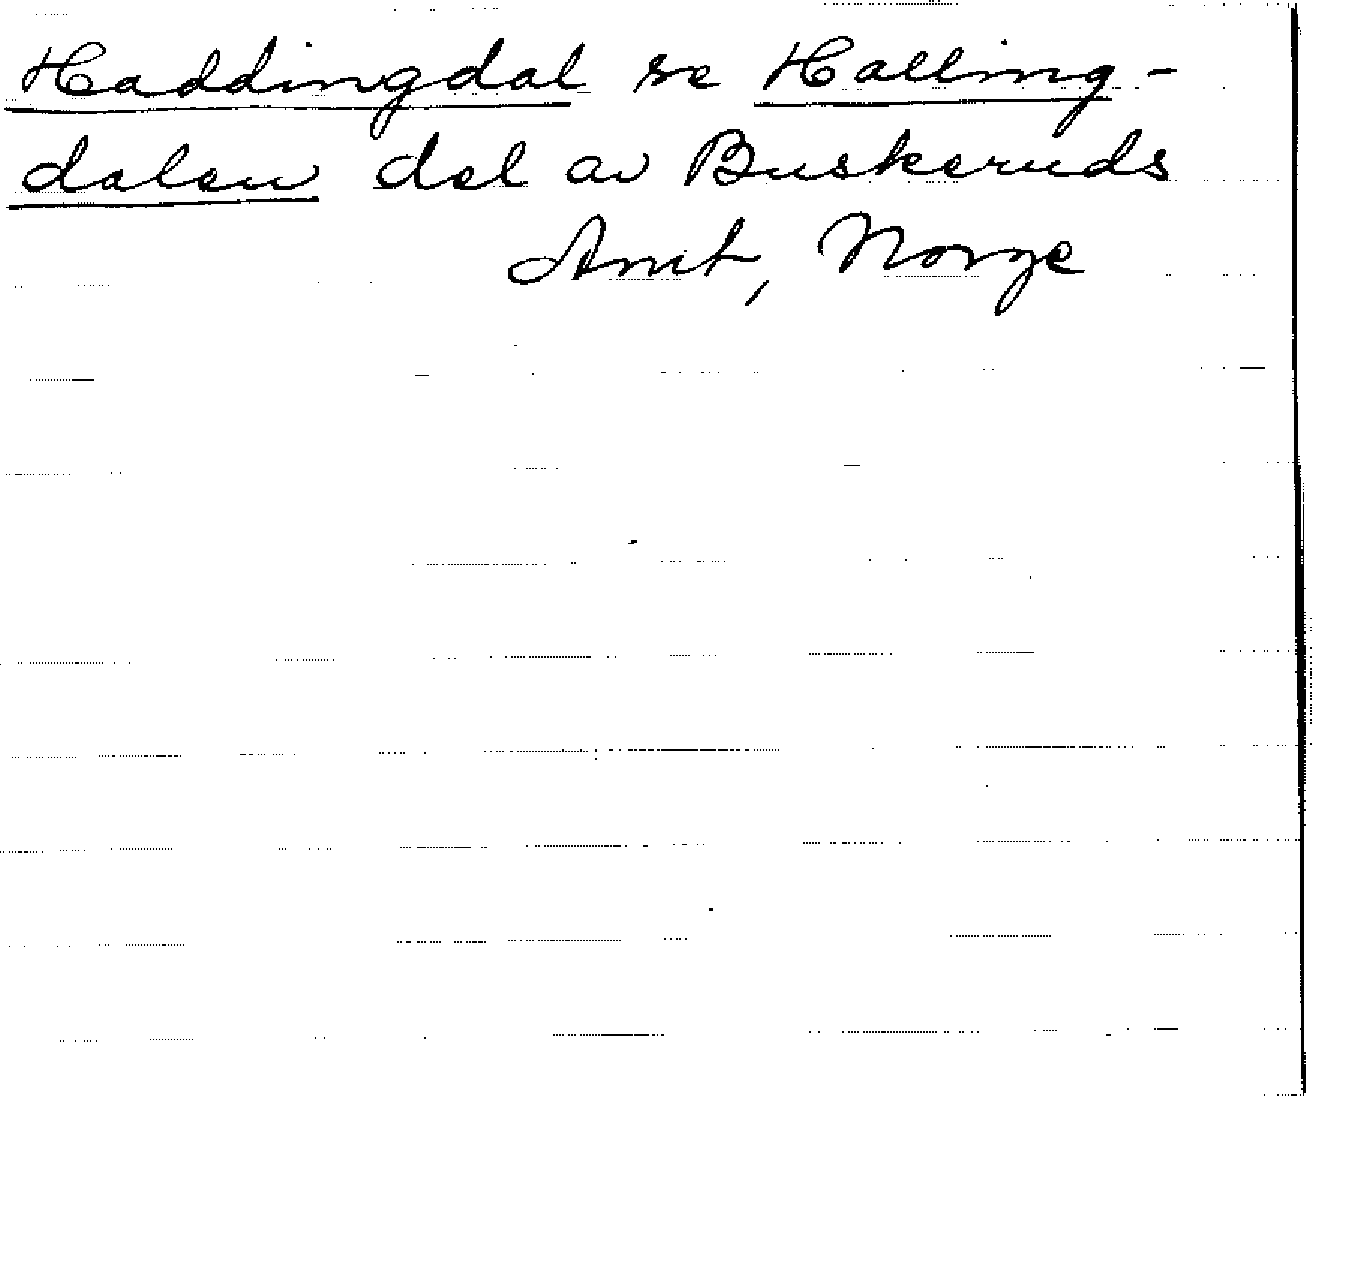 Haddingdal se Halling-
dalen del av Buskeruds
Amt, Norge